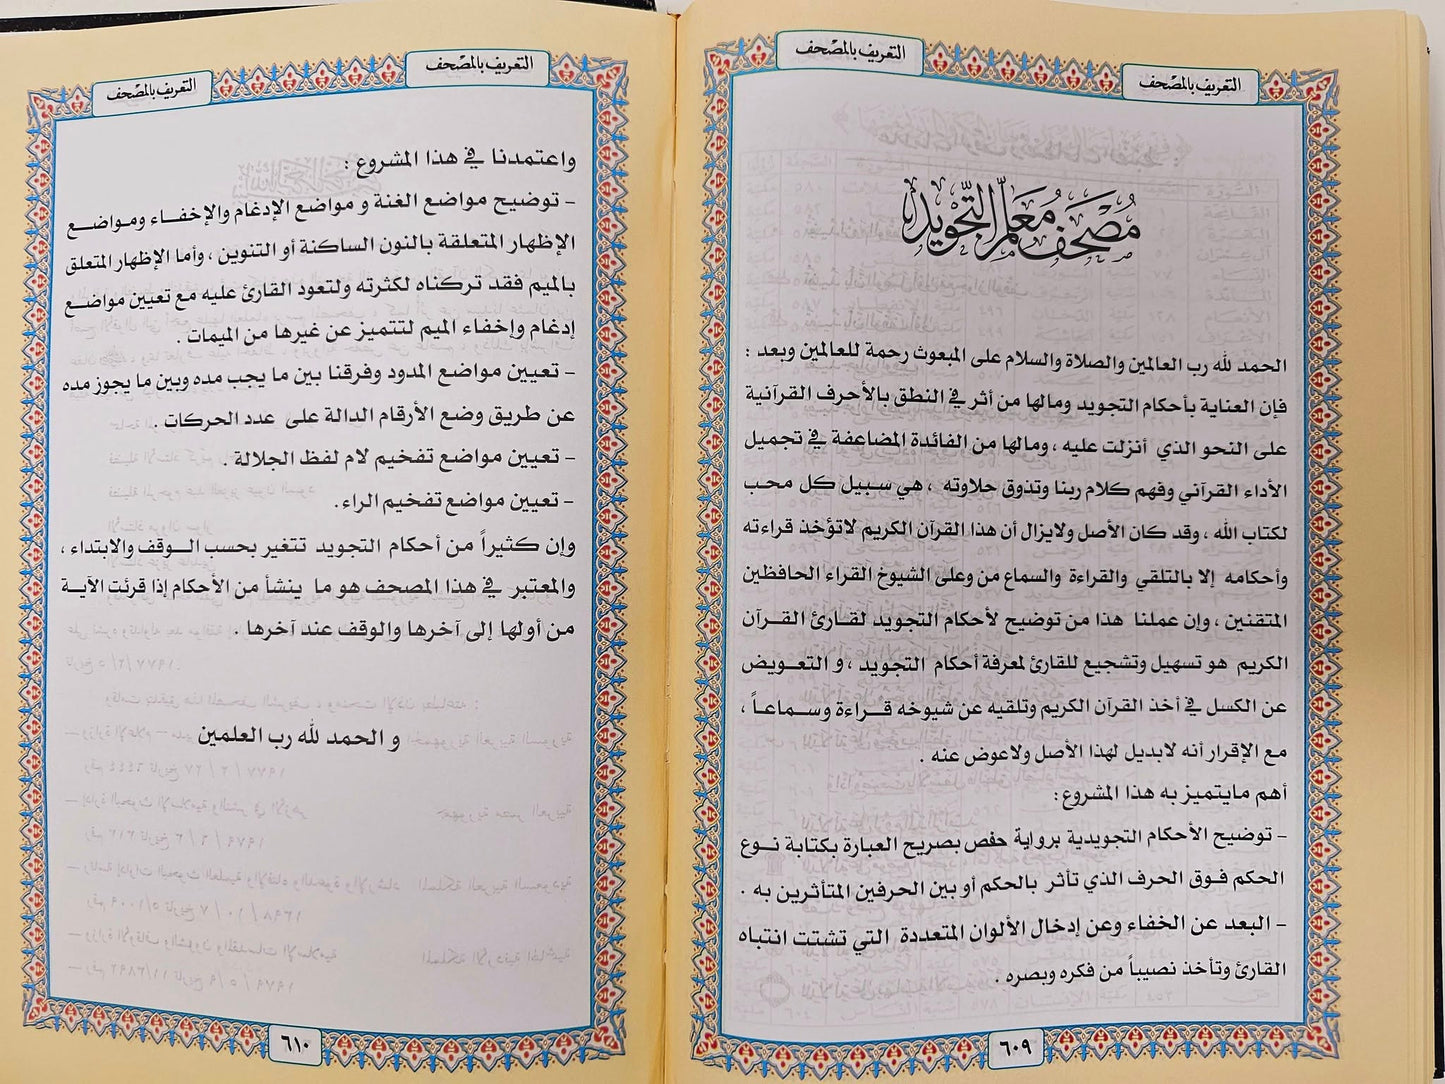 التعريف بالمصحف
التعريف بالمصحف
مصحف معلم التجويد
الحمد لله رب العالمين والصلاة والسلام على المبعوث رحمة للعالمين وبعد :
فإن العناية بأحكام التجويد ومالها من أثر في النطق بالأحرف القرآنية
على النحو الذي أنزلت عليه ، ومالها من الفائدة المضاعفة في تجميل
الأداء القرآني وفهم كلام ربنا وتذوق حلاوته ، هي سبيل كل محب
لكتاب الله ، وقد كان الأصل ولايزال أن هذا القرآن الكريم لاتؤخذ قراءته
وأحكامه إلا بالتلقي والقراءة والسماع من وعلى الشيوخ القراء الحافظين
المتقنين ، وإن عملنا هذا من توضيح لأحكام التجويد لقارئ القرآن
الكريم هو تسهيل وتشجيع للقارئ لمعرفة أحكام التجويد ، و التعويض
عن الكسل في أخذ القرآن الكريم وتلقيه عن شيوخه قراءة وسماعاً ،
مع الإقرار أنه لابديل لهذا الأصل ولاعوض عنه .
أهم مايتميز به هذا المشروع:
- توضيح الأحكام التجويدية برواية حفص بصريح العبارة بكتابة نوع
الحكم فوق الحرف الذي تأثر بالحكم أو بين الحرفين المتأثرين به .
- البعد عن الخفاء وعن إدخال الألوان المتعددة التي تشتت انتباه
القارئ وتأخذ نصيباً من فكره وبصره .
٦٠٩
التعريف بالمصحف
التعريف بالمصحف
واعتمدنا في هذا المشروع :
- توضيح مواضع الغنة و مواضع الإدغام والإخفاء ومواضع
الإظهار المتعلقة بالنون الساكنة أو التنوين ، وأما الإظهار المتعلق
بالميم فقد تركناه لكثرته ولتعود القارئ عليه مع تعيين مواضع
إدغام وإخفاء الميم لتتميز عن غيرها من الميمات .
- تعيين مواضع المدود وفرقنا بين ما يجب مده وبين ما يجوز مده
عن طريق وضع الأرقام الدالة على عدد الحركات .
- تعيين مواضع تفخيم لام لفظ الجلالة .
- تعيين مواضع تفخيم الراء.
وإن كثيراً من أحكام التجويد تتغير بحسب الوقف والابتداء ،
والمعتبر في هذا المصحف هو ما ينشأ من الأحكام إذا قرئت الآية
من أولها إلى آخرها والوقف عند آخرها .
و الحمد لله رب العلمين
٦١٠